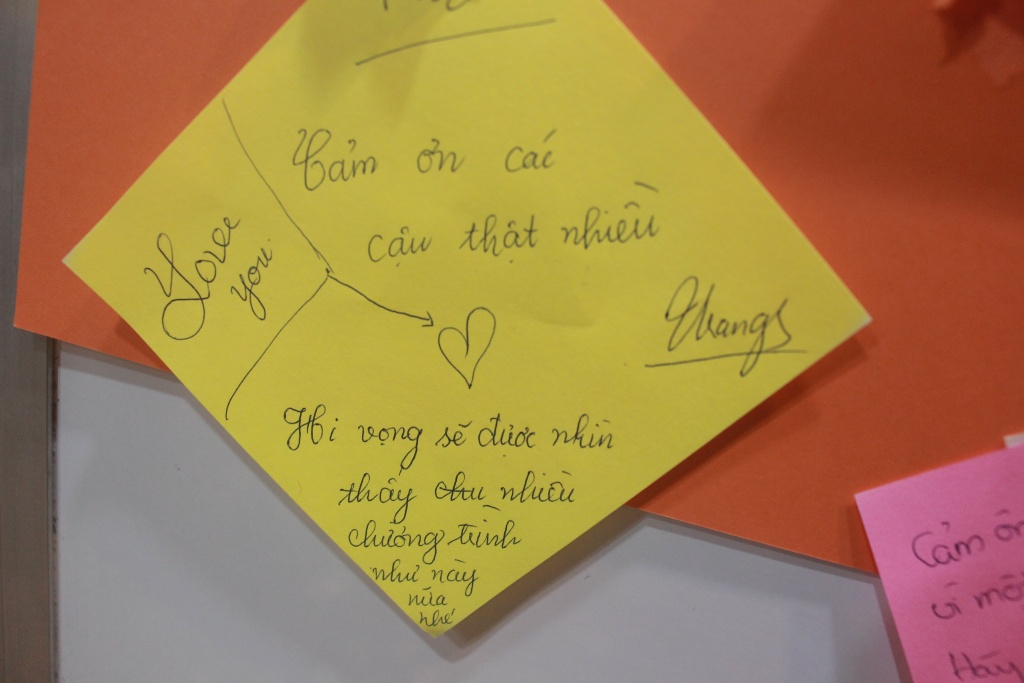 Cảm ơn các
cậu thật nhiều
Love
you
Thangs
Hi vọng sẽ được nhìn
thấy nhiều
chương trình
như này
nữa
nhé
Cảm ơn
vì một
Hãy